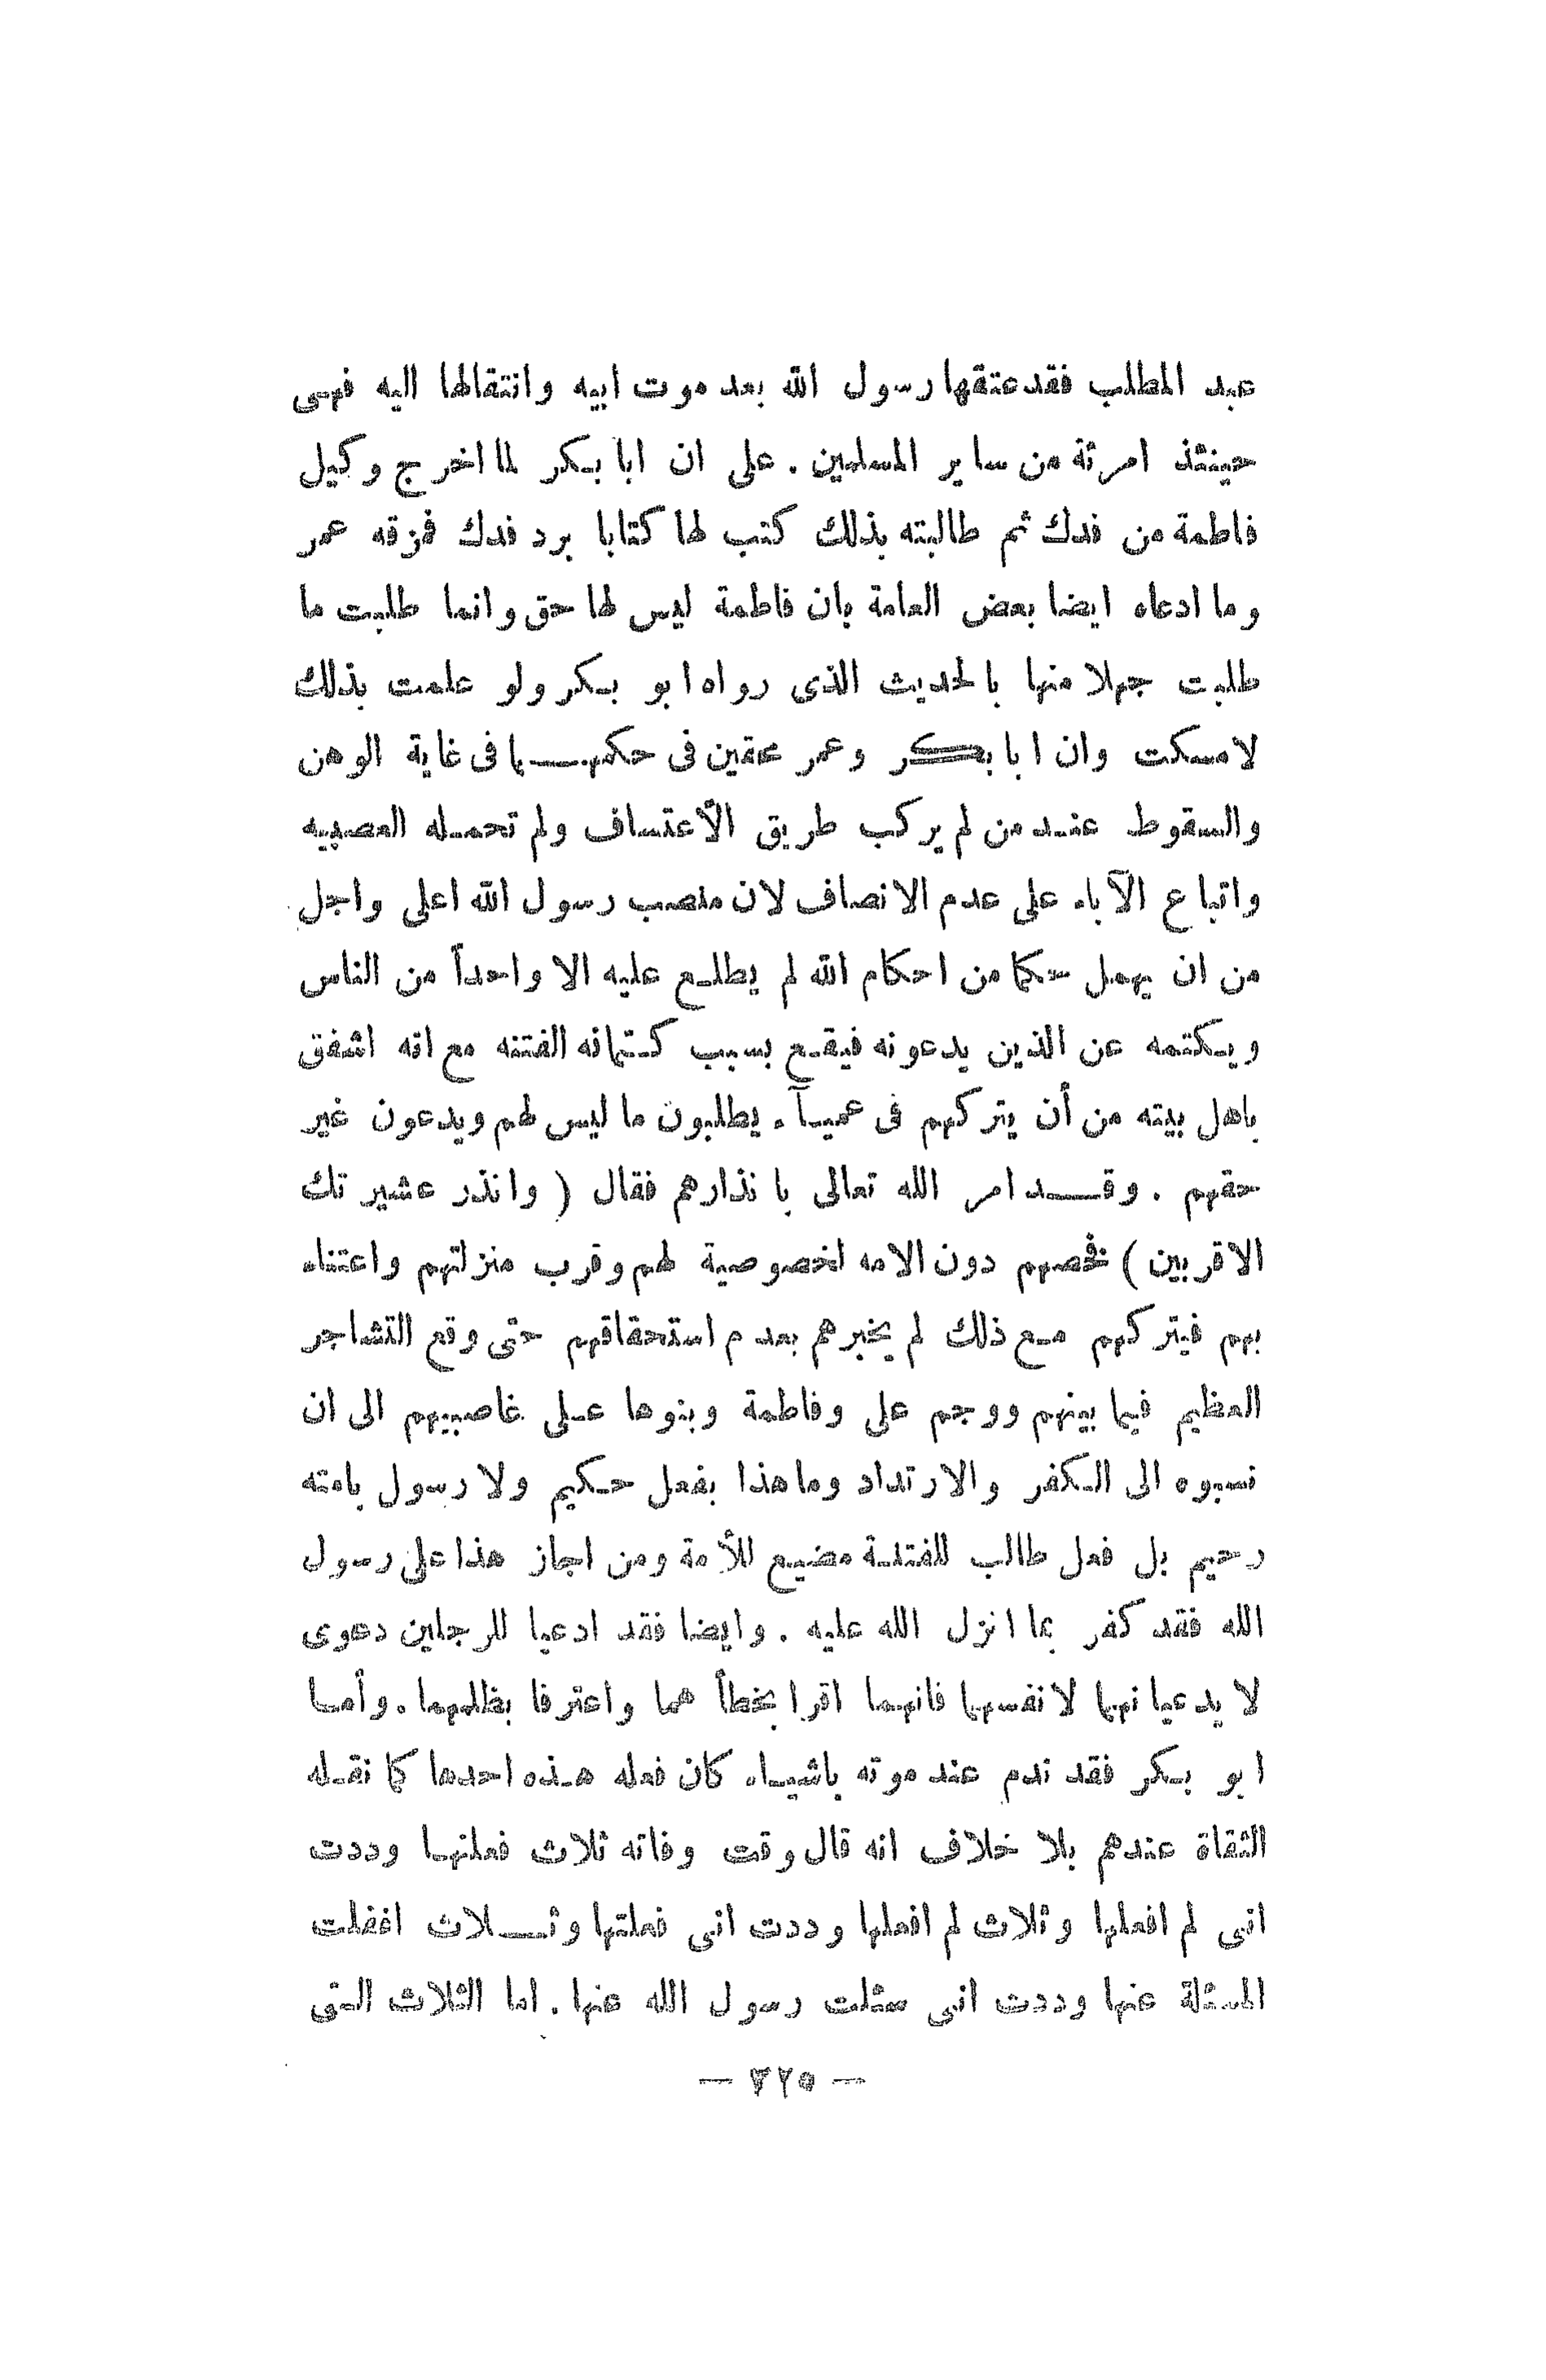 عبد المطلب فقد عتقها رسول الله بعد موت ابيه وانتقالها اليه فهي
حينئذ امرئة من ساير المسلمين . على ان ابا بكر لما اخرج وكيل
فاطمة من فدك ثم طالبته بذلك كتب لها كتابا برد فدك فمزقه عمر
وما ادعاه ايضا بعض العامة بان فاطمة ليس لها حق وانما طلبت ما
طلبت جهلا منها بالحديث الذى رواه ابو بكر ولو علمت بذلك
لامسكت وان ابا بكر وعمر محقين فى حكمهما فى غاية الوهن
والسقوط عند من لم يركب طريق الأعتساف ولم تحمله العصبيه
واتباع الآباء على عدم الانصاف لان منصب رسول الله اعلى واجل
من ان يهمل حكما من احكام الله لم يطلع عليه الا واحداً من الناس
ويكتمه عن الذين يدعونه فيقع بسبب كتمانه الفتنه مع انه اشفق
باهل بيته من أن يتركهم فى عميآء يطلبون ما ليس لهم ويدعون غير
حقهم . وقد امر الله تعالى بانذارهم فقال ( وانذر عشيرتك
الاقربين ) فخصهم دون الامه لخصوصية لهم وقرب منزلتهم واعتناء
بهم فيتركهم مع ذلك لم يخبرهم بعدم استحقاقهم حتى وقع التشاجر
العظيم فيما بينهم ووجم على وفاطمة وبنوها على غاصبيهم الى ان
نسبوه الى الكفر والارتداد وما هذا بفعل حكيم ولا رسول بامته
رحيم بل فعل طالب للفتنة مضيع للأمة ومن اجاز هذا على رسول
الله فقد كفر بما انزل الله عليه . وايضا فقد ادعيا للرجلين دعوى
لا يدعيانها لانفسهما فانهما اقرا بخطأهما واعترفا بظلمهما . وأما
ابو بكر فقد ندم عند موته باشياء كان فعله هذه احدها كما نقله
الثقاة عندهم بلا خلاف انه قال وقت وفاته ثلاث فعلتها وددت
انى لم افعلها وثلاث لم افعلها وددت انى فعلتها وثلاث اغفلت
المسئلة عنها وددت انى سئلت رسول الله عنها . اما الثلاث التى
— ٣٢٥ —